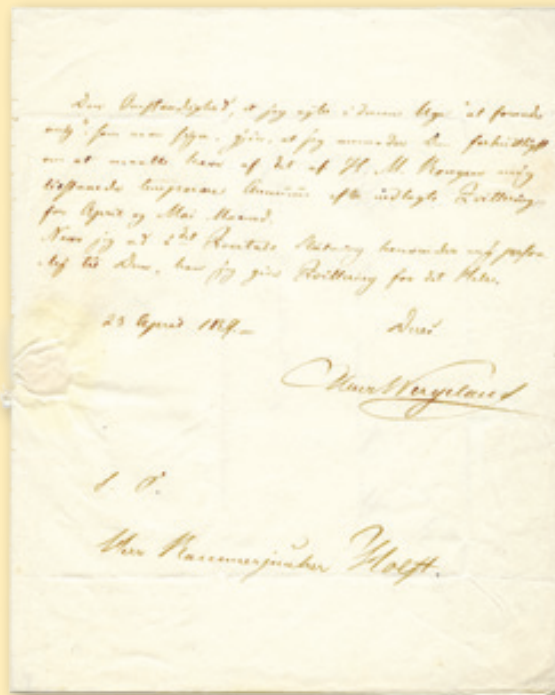 Den Omstændighed, at jeg agter i denne Uge "at forandre
mig" som man siger, gjør, at jeg anmoder Dem
om at modtage af det af H. M. Kongen mig
tilstaaede temporære efter indlagte Qvittering
for April og Mai Maaned.
Naar jeg ved henvender mig person-
lig til Dem, kan jeg give Qvittering for det Hele.
23 April 1839.
Deres
Henr Wergeland
S. T.
Herr Kammerjunker Holst.